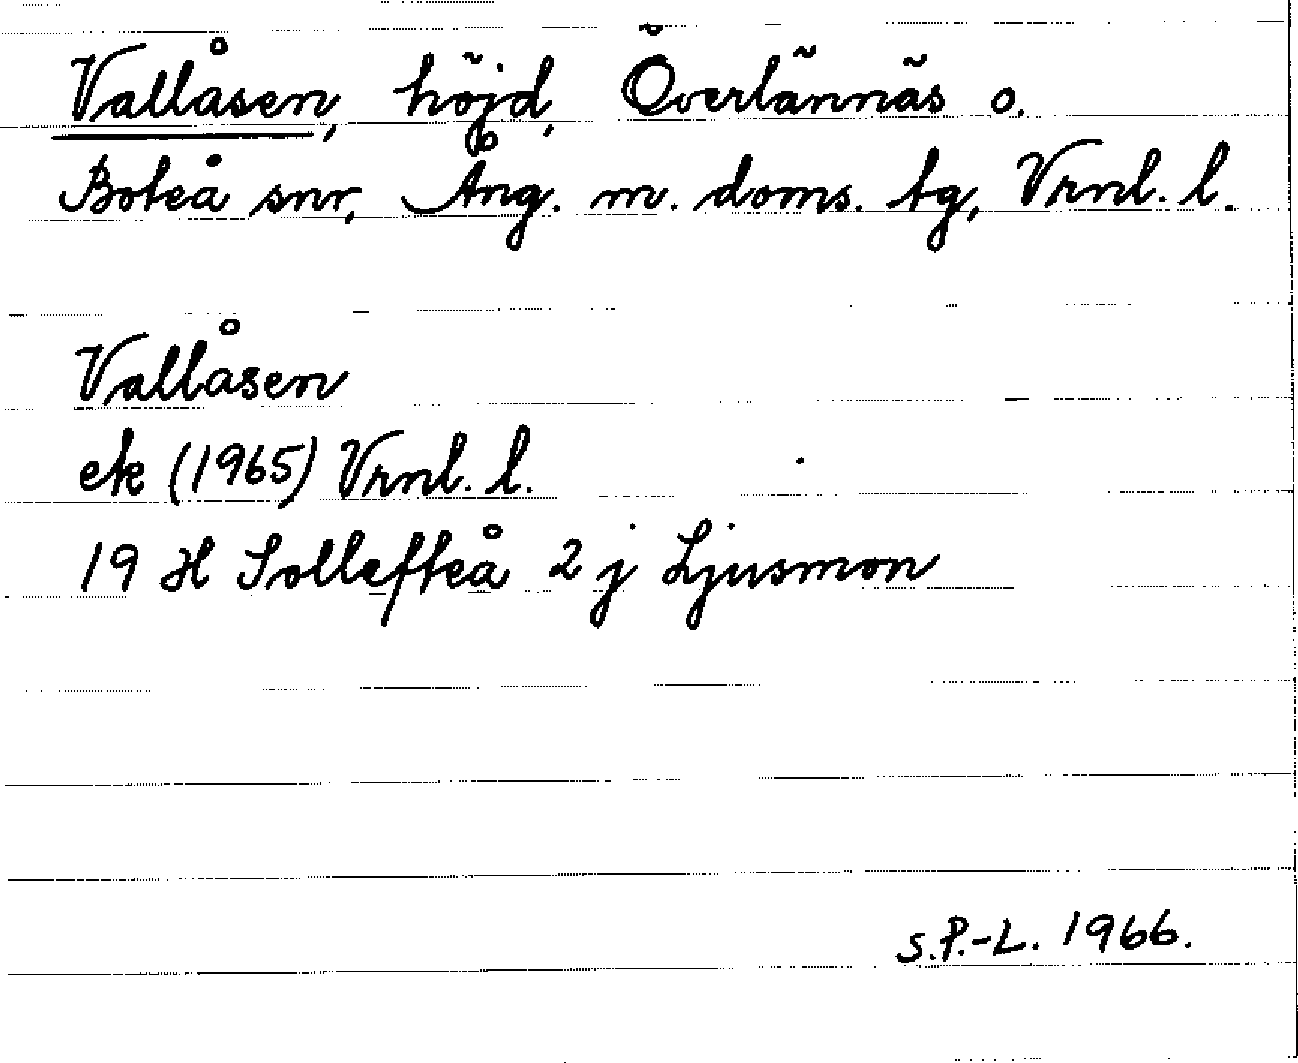 Vallåsen, höjd, Överlännäs o.
Boteå snr, Ång. m. doms. tg, Vrnl. l.
Vallåsen
ek (1965) Vrnl. l.
19 H Sollefteå 2 j Ljusmon
S.P.-L. 1966.